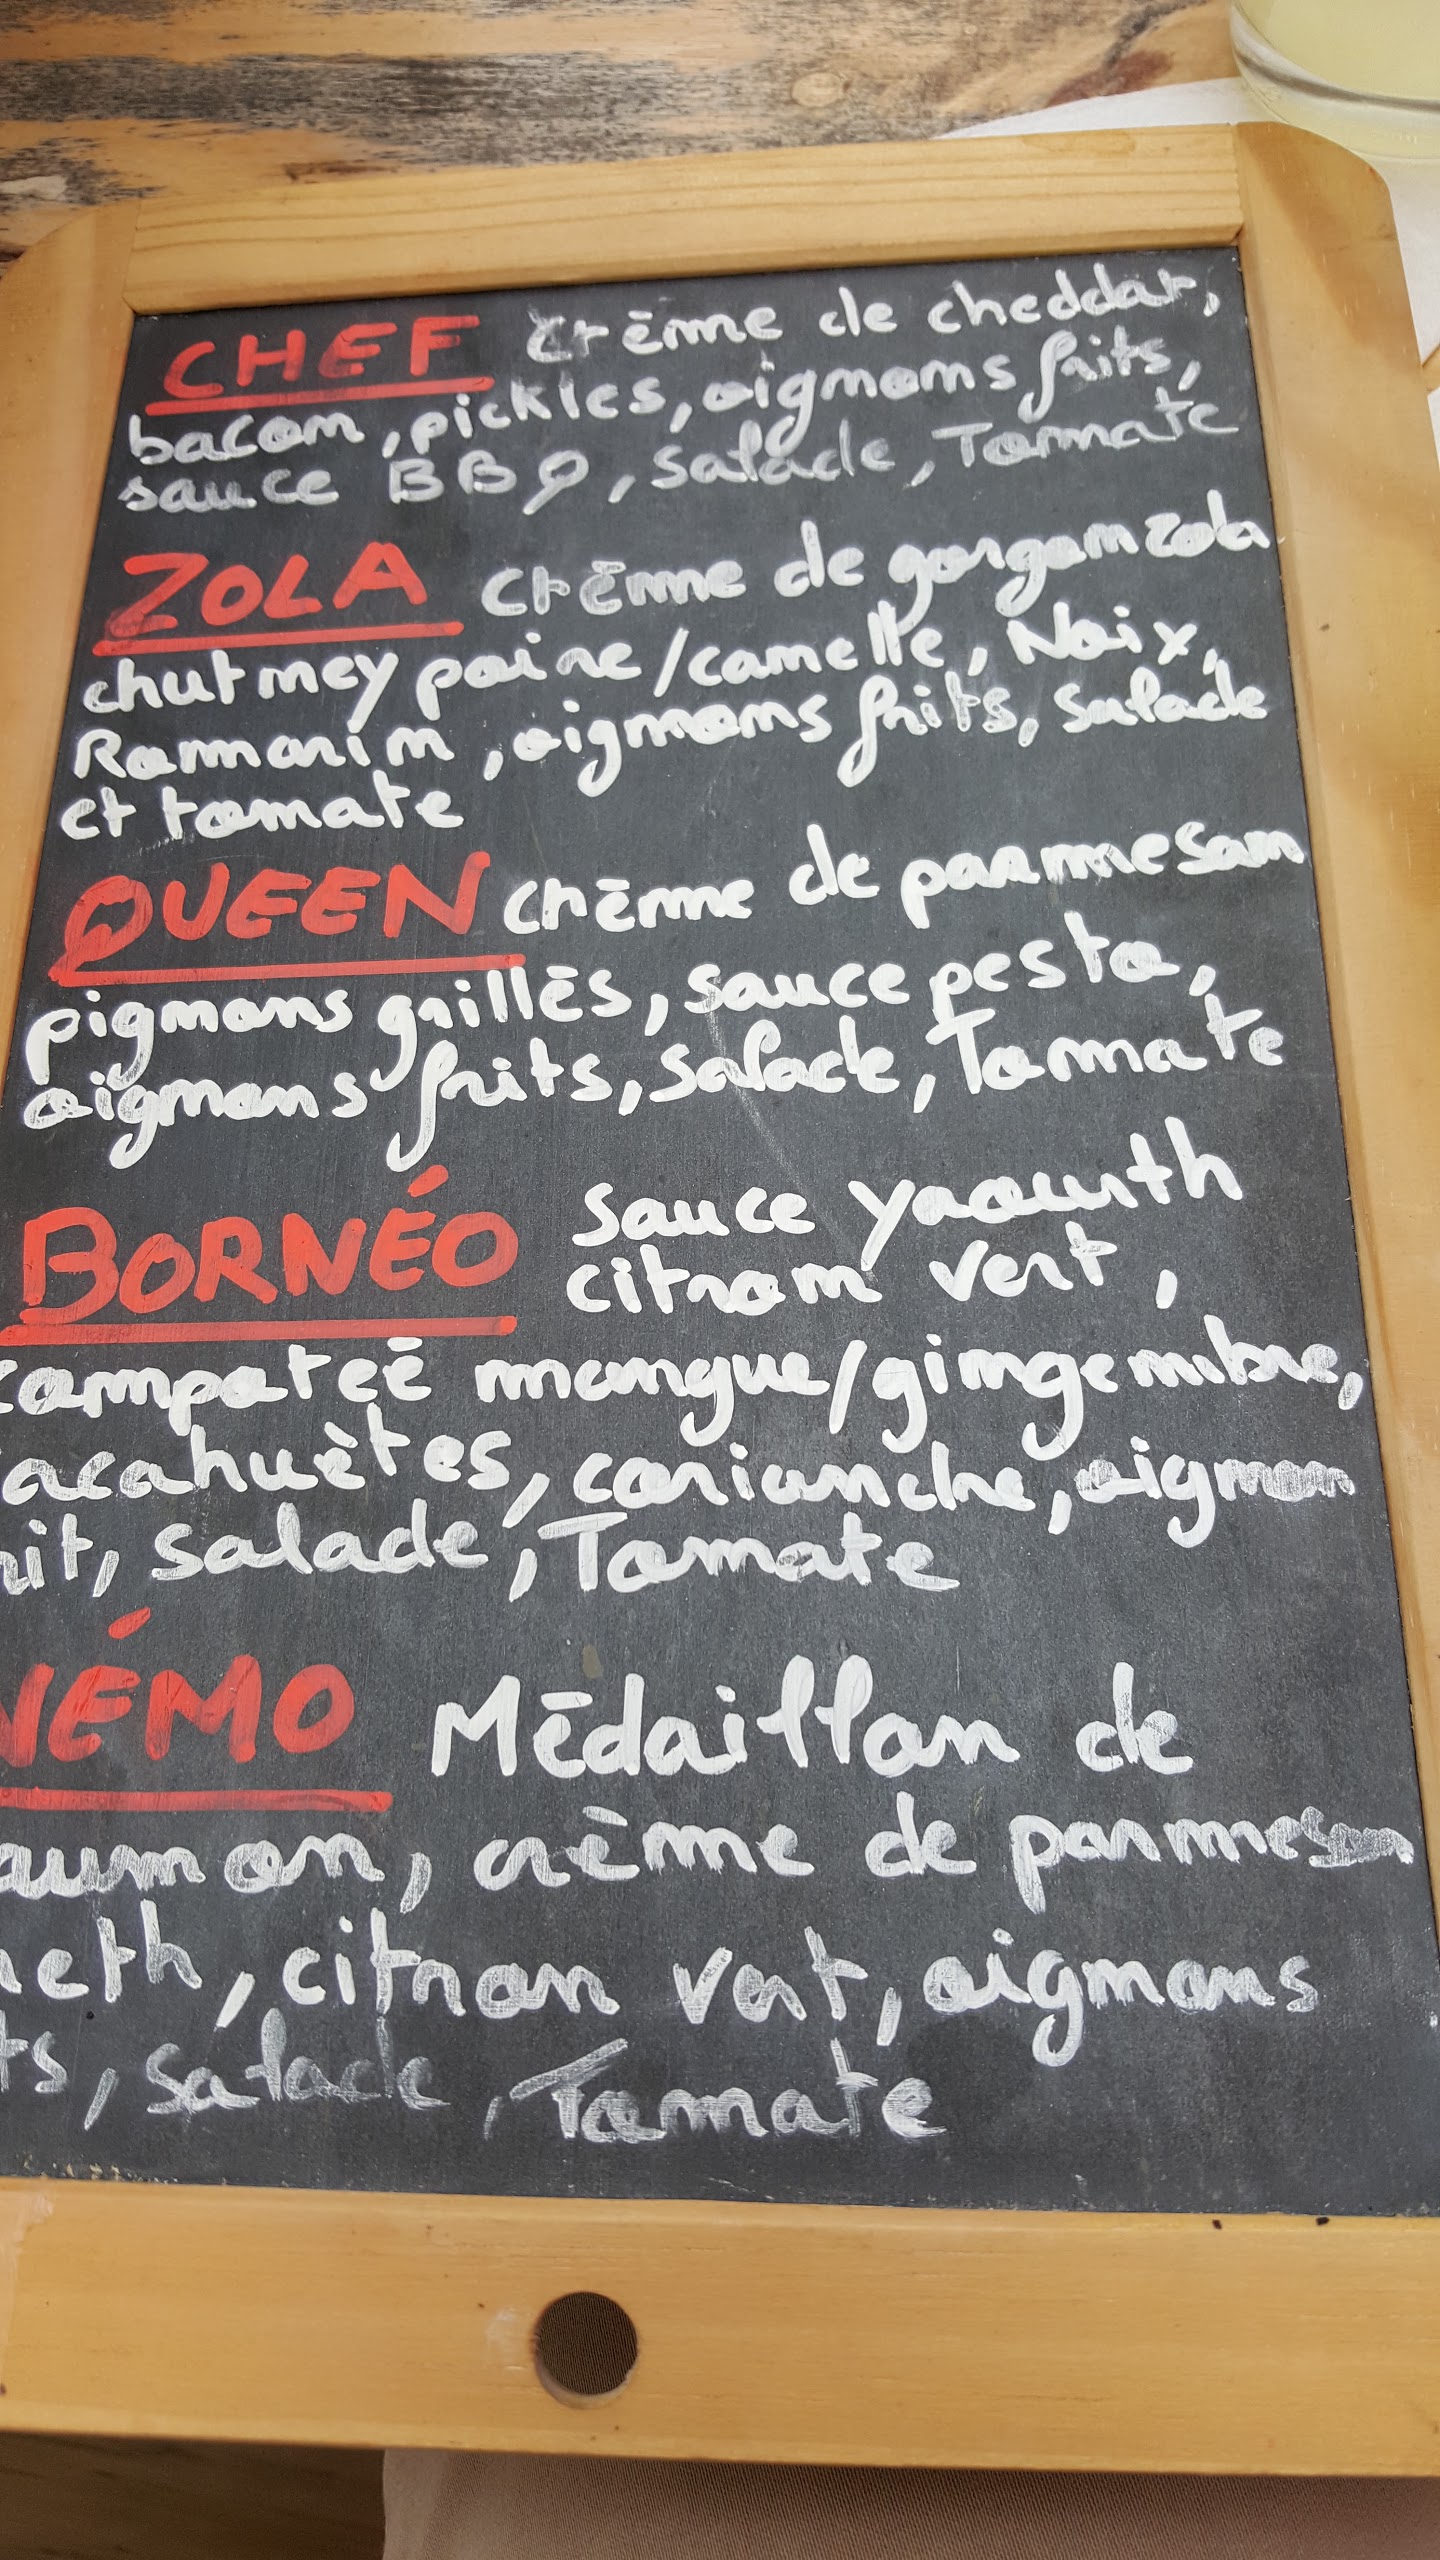 CHEF Crème de cheddar,
bacon, pickles, oignons frits,
sauce BBQ, salade, Tomate
ZOLA Crème de gorgonzola
chutney poire/canelle, Noix,
Romarin, oignons frits, salade
et tomate
QUEEN crème de parmesan
pignons grillés, sauce pesto,
oignons frits, salade, Tomate
BORNÉO sauce yaourth
citron vert,
compoteé mangue/gingembre,
acahuètes, coriandre, oignon
rit, salade, Tomate
NÉMO Médaillon de
aumon, crème de parmesan
neth, citron vert, oignons
ts, salade, Tomate